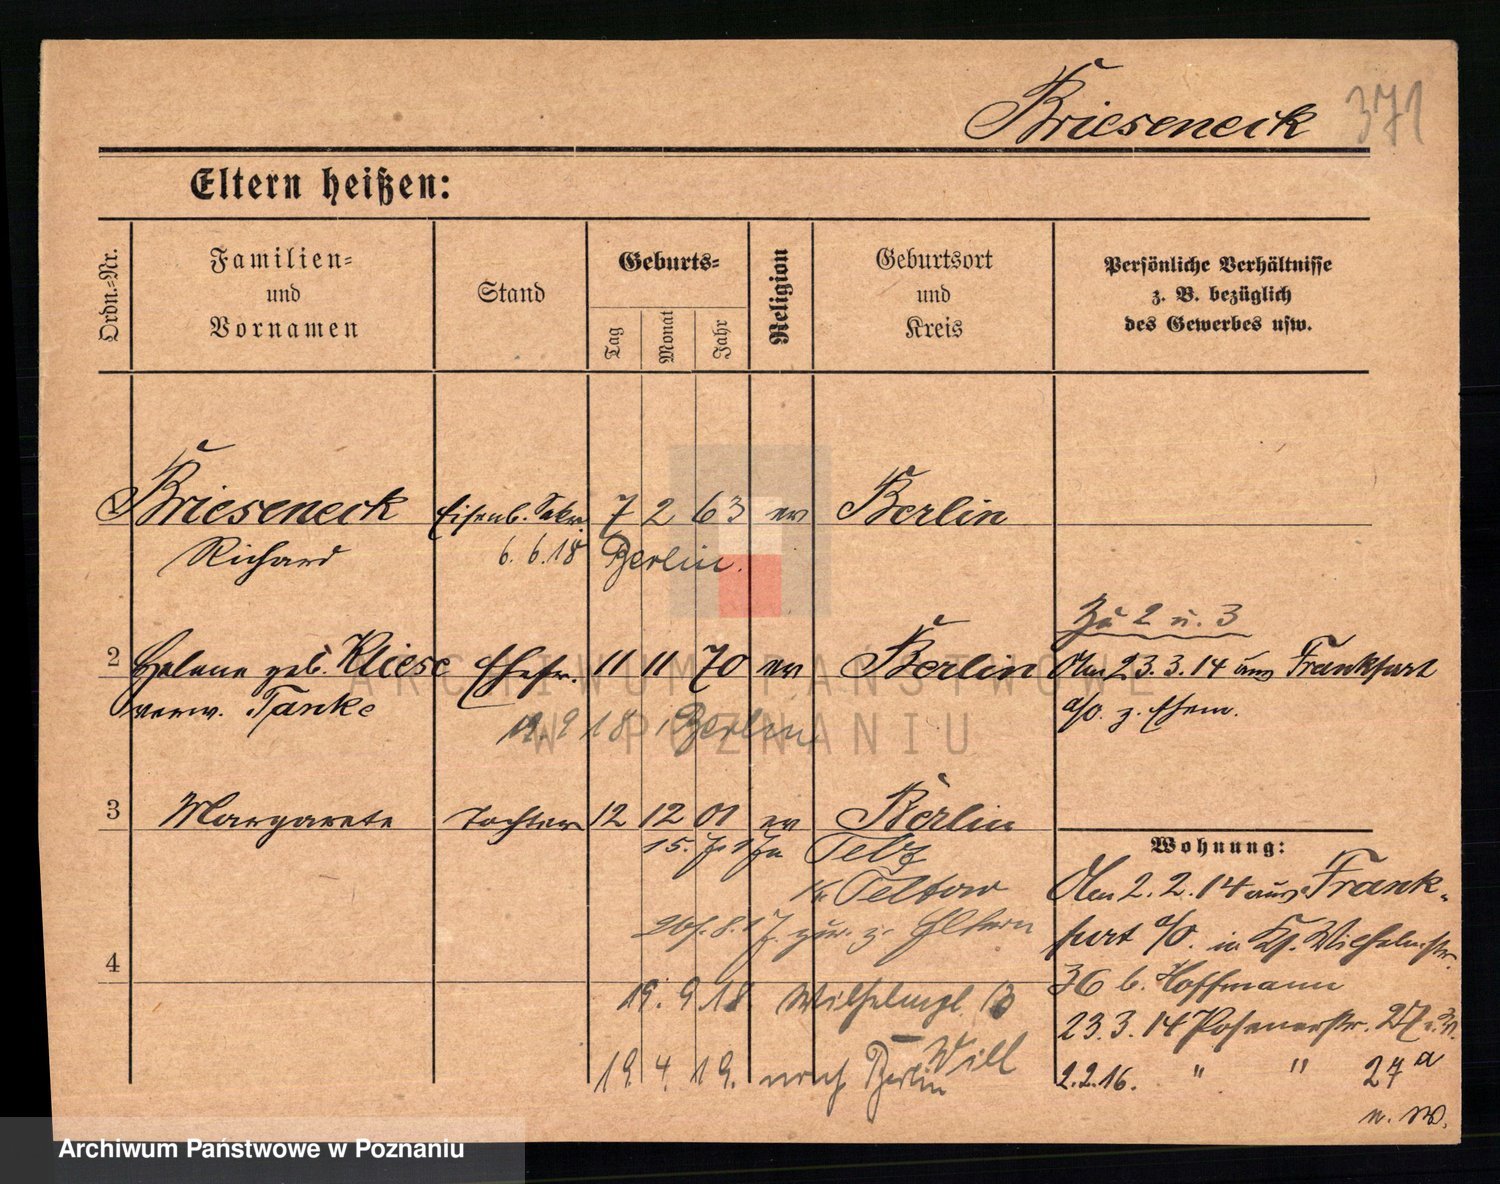 Brieseneck 371
Eltern heißen:
Ordn.=Nr.
Familien=
und
Vornamen
Stand
Geburts=
Tag
Monat
Jahr
Religion
Geburtsort
und
Kreis
Persönliche Verhältnisse
z. B. bezüglich
des Gewerbes usw.
Brieseneck Eisenb. Sekr. 7 2 63 ev Berlin
Richard 6. 6. 18 Berlin.
Zu 2 u. 3
2 Helene geb. Kliese Ehefr. 11 11 70 ev Berlin Am 23.3.14 aus Frankfurt
verw. Tanke a/O. z. Ehem.
19. 9 18 Berlin
3 Margarete Tochter 12 12 01 ev Berlin
15. 7. 17
Wohnung:
Kr. Teltow
Am 2. 2. 14 aus Frank-
furt a/O. in Wilhelmstr.
8. 17. zur. z. Eltern
4
36 b. Hoffmann
19. 9 18. 
23. 3. 14 Posenerstr. 27
Will
19. 4. 19. nach Berlin
2.2.16. " " 27a
n. W.
ARCHIWUM PAŃSTWOWE
W POZNANIU
Archiwum Państwowe w Poznaniu